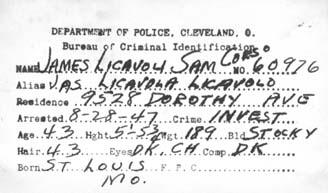 DEPARTMENT OF POLICE, CLEVELAND, O.
Bureau of Criminal Identification
NAME JAMES LICAVOLI SAM CORSO NO. 60976
Alias JAS. LICAVOLA LICAVOLO
Residence 9528 DOROTHY AVE
Arrested 8-28-47 Crime INVEST.
Age 43 Hght 5-5 3/4 Wgt 189 Bld STOCKY
Hair 43 Eyes DK. CH Comp. DK
Born ST LOUIS F.P.C.
MO.